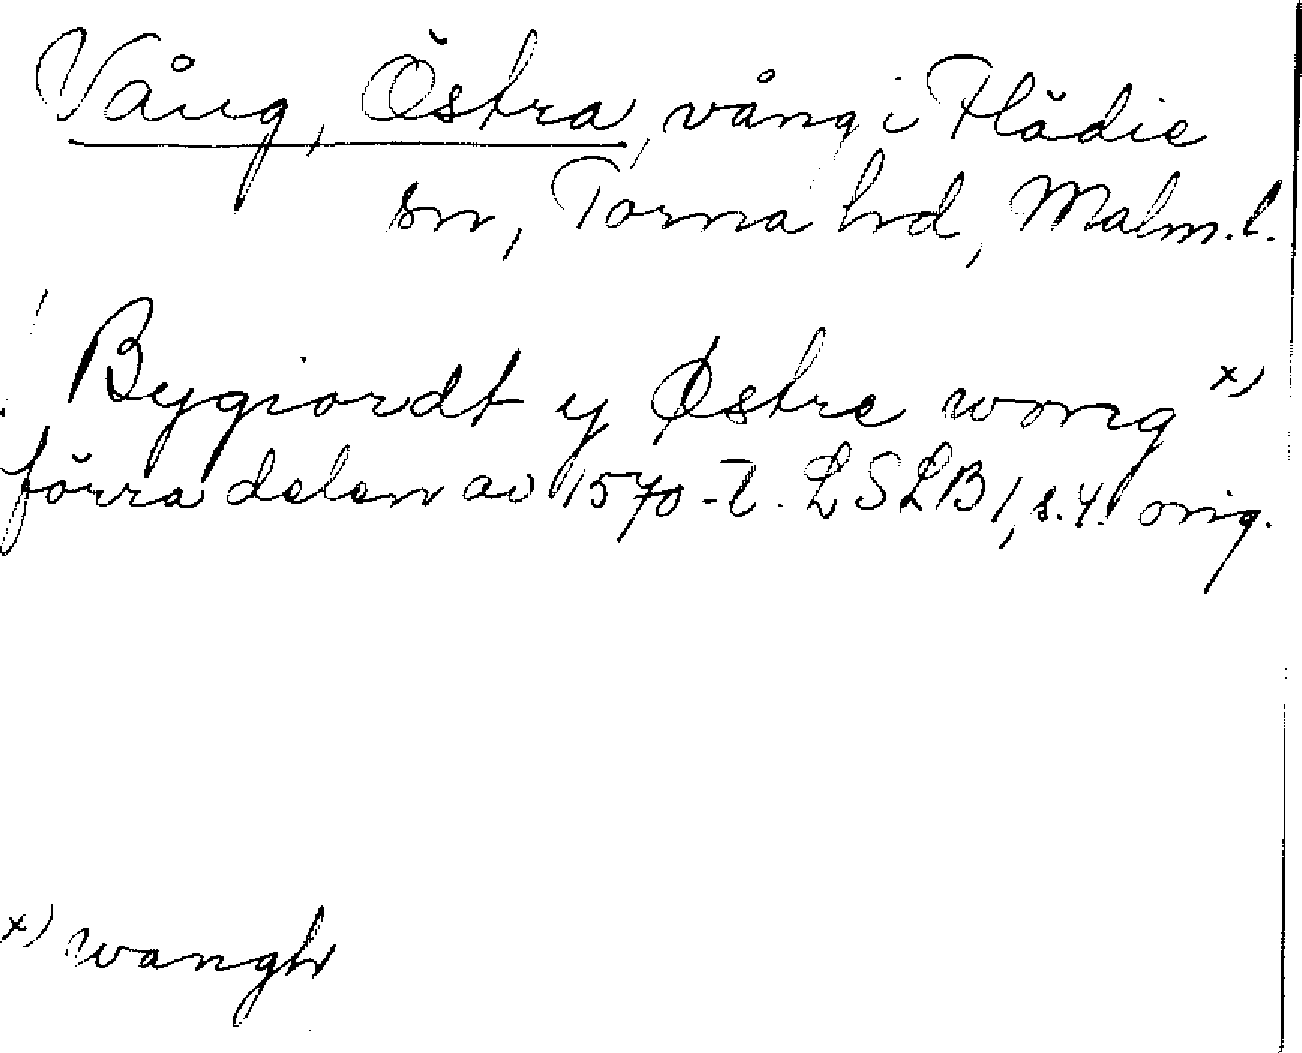 Vång, Östra, vång i Flädie
sn, Torna hd, Malm.l.
Bygiordt y Østre wong x)
förra delen av 1570-t. LSLB 1, s. 4. orig.
x) wangh